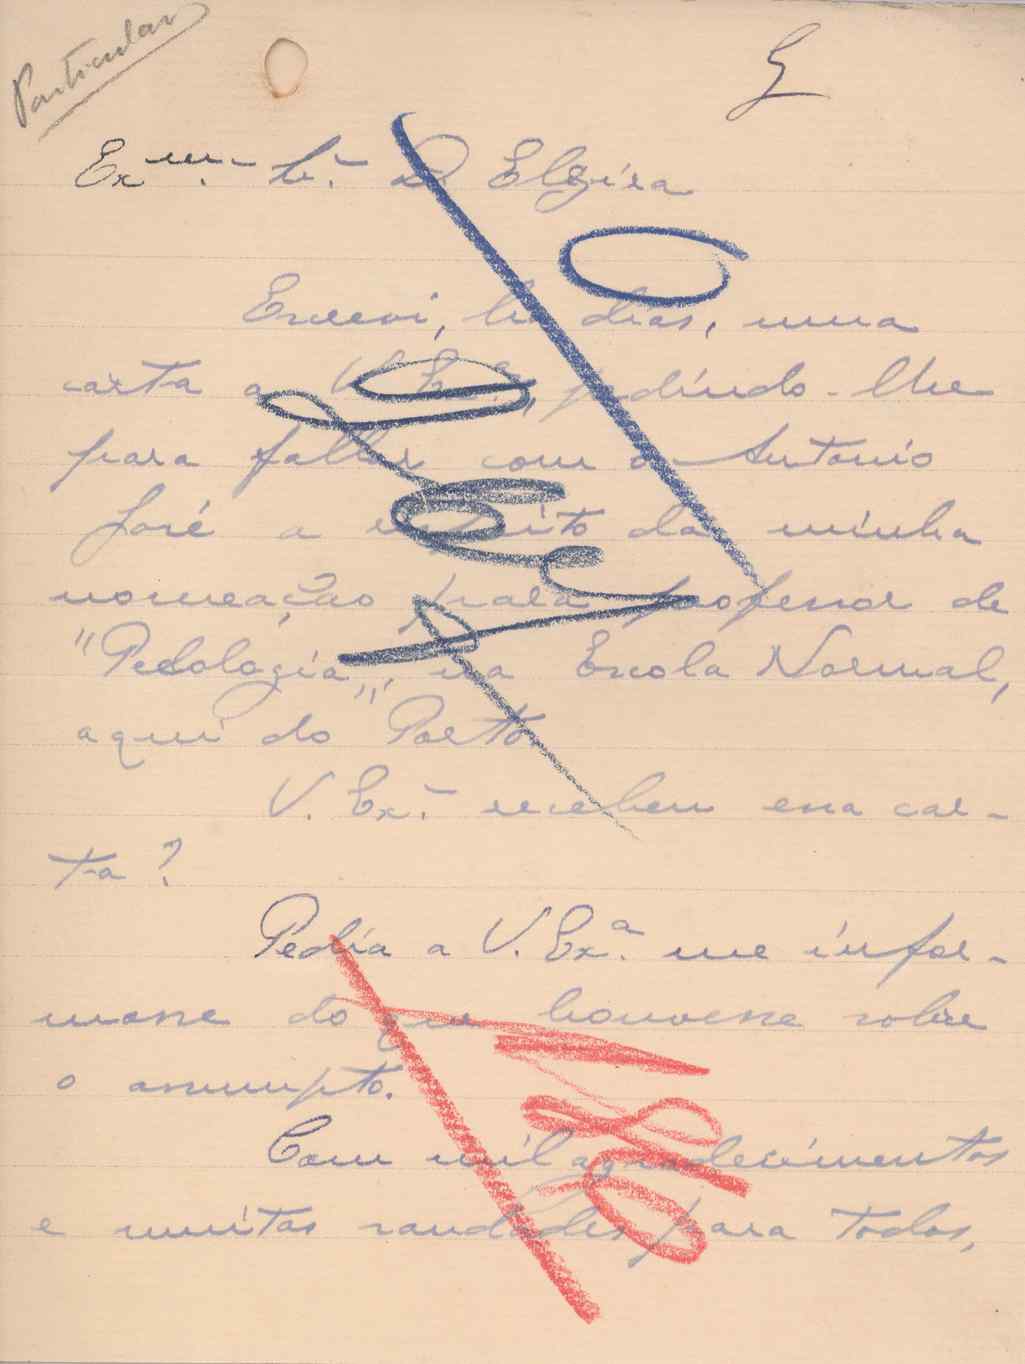 Particular
Ex.ma Sr.a D. Elzira
Escrevi, ha dias, uma
carta a V. Ex.a, pedindo-lhe
para fallar com o Antonio
José a respeito da minha
nomeação para professor de
"Pedologia", na Escola Normal,
aqui do Porto.
V. Ex.a recebeu essa car-
ta?
Pedia a V. Ex.a me infor-
masse do que houvesse sobre
o assumpto.
Com mil agradecimentos
e muitas saudades para todos,